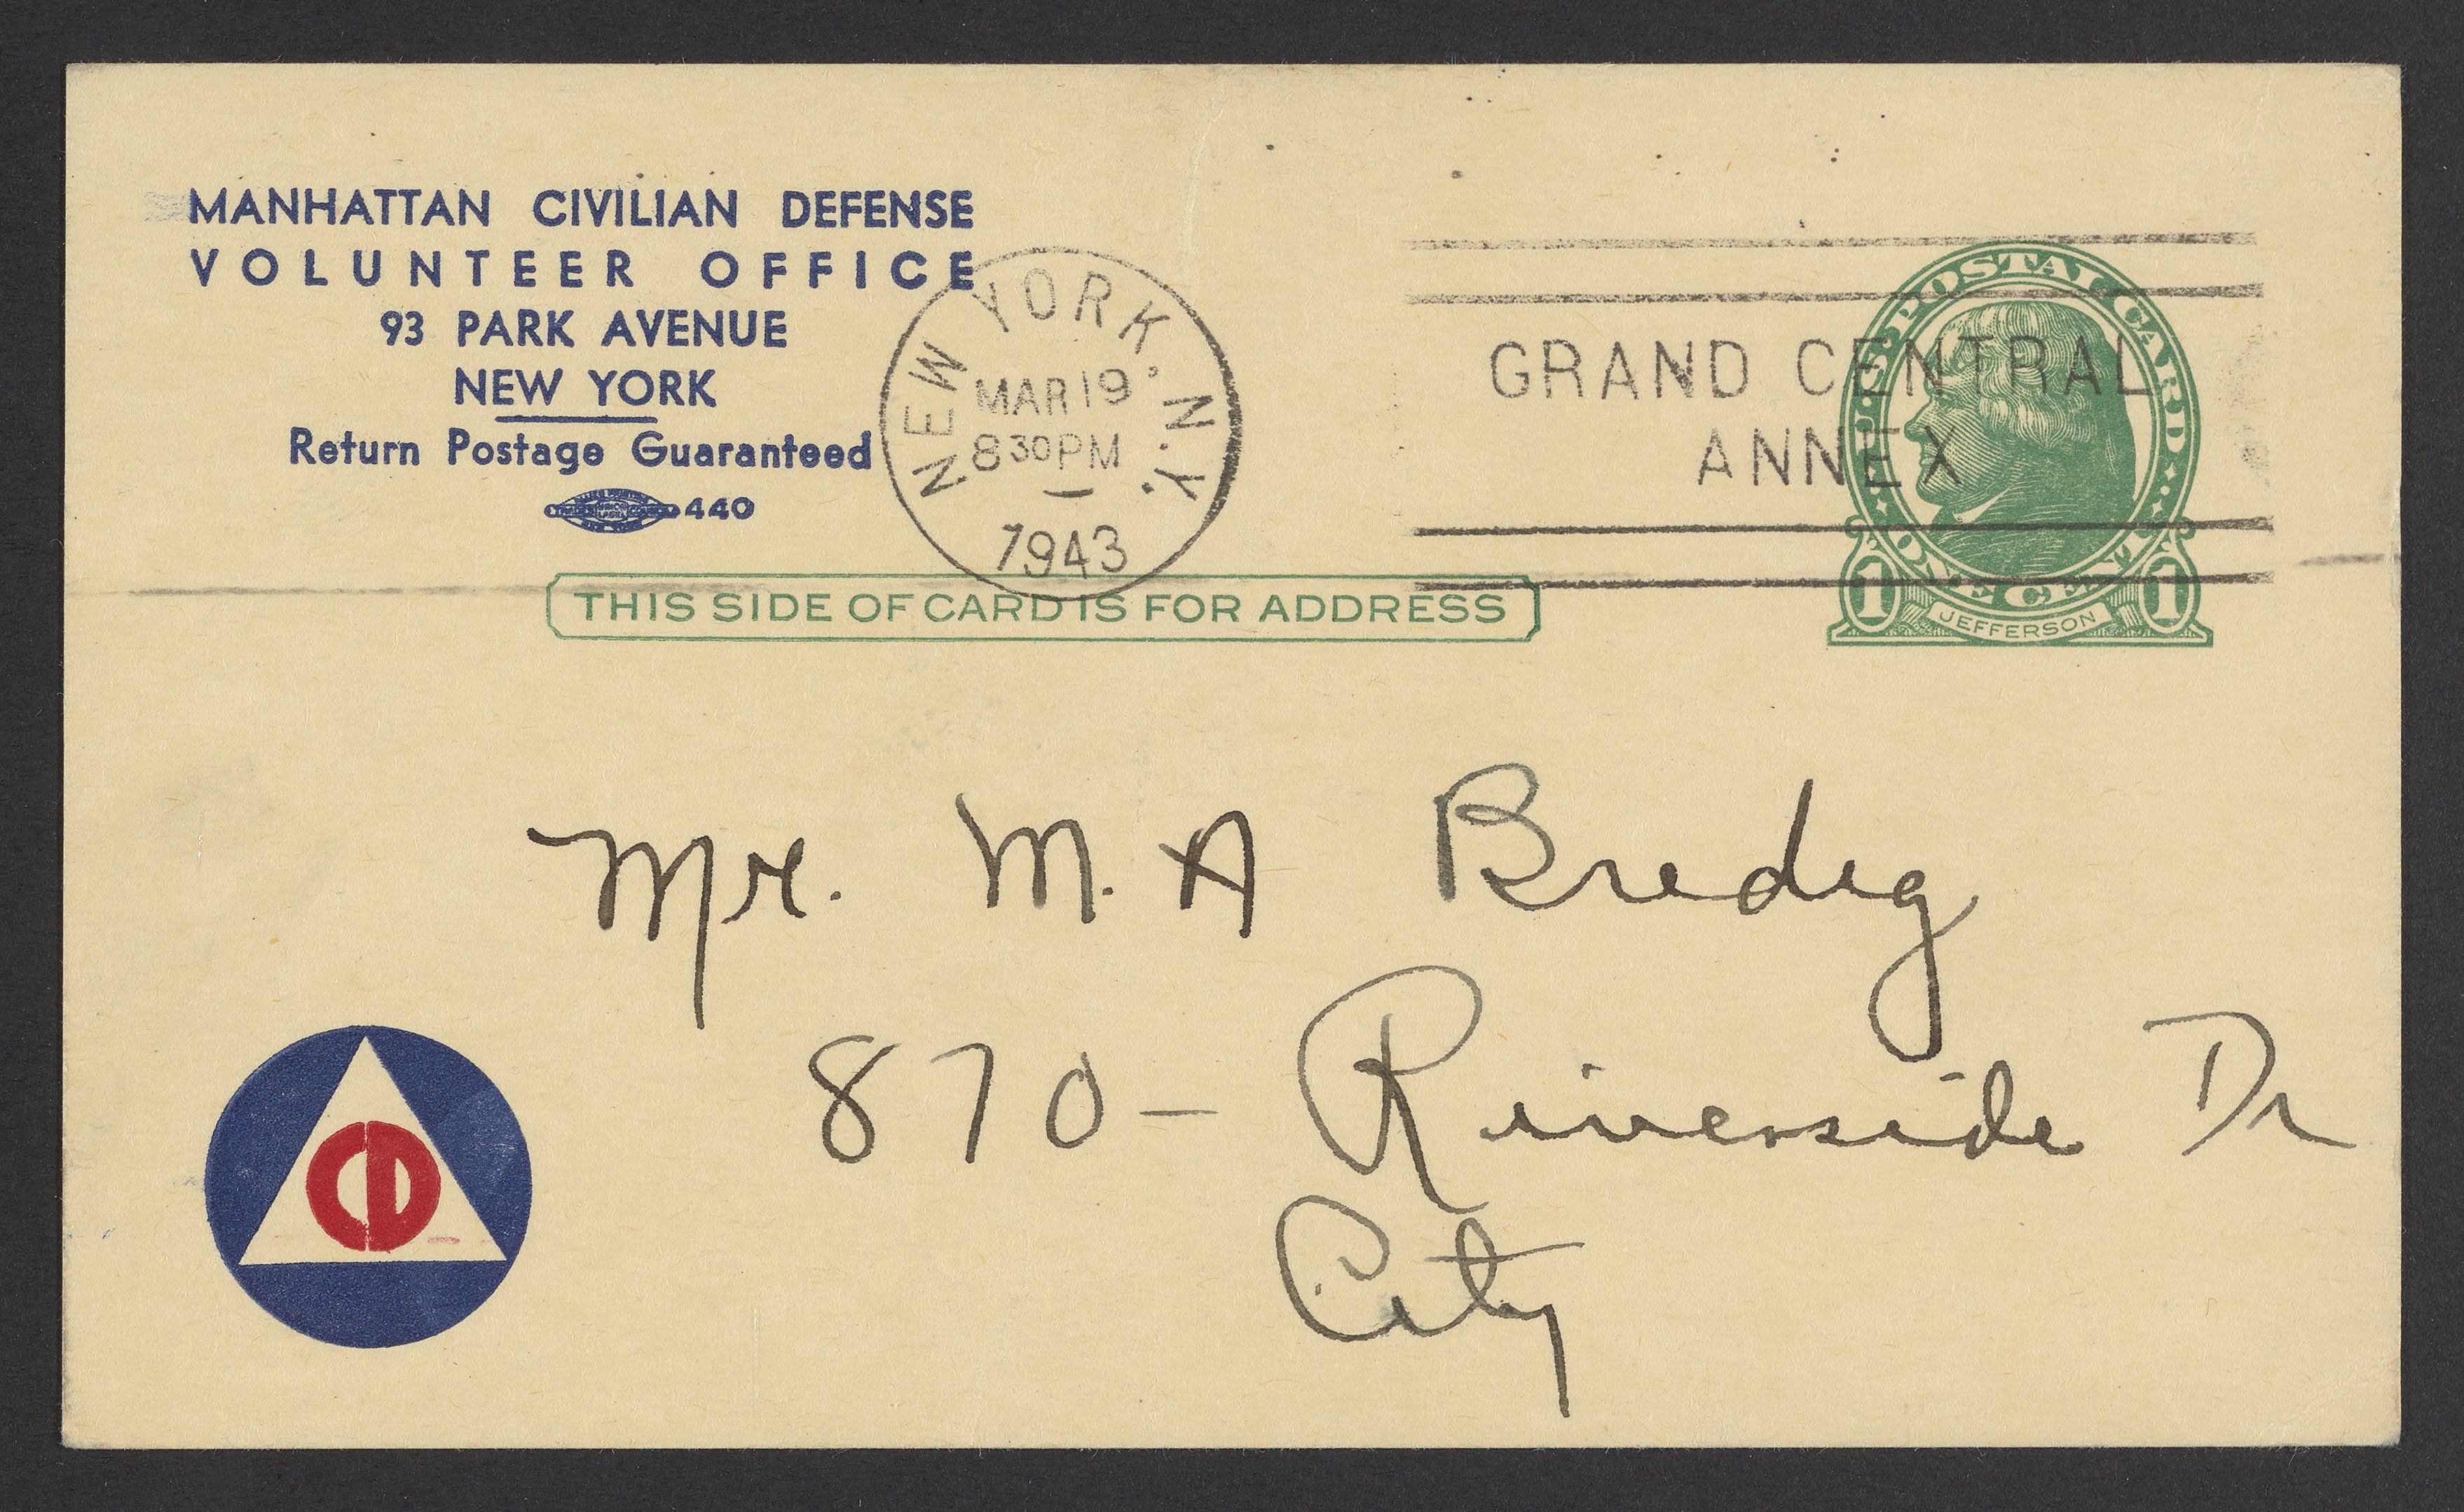 MANHATTAN CIVILIAN DEFENSE
VOLUNTEER OFFICE
93 PARK AVENUE
NEW YORK
Return Postage Guaranteed
440
NEW YORK, N.Y.
MAR 19
8 30 PM
1943
GRAND CENTRAL
ANNEX
U.S. POSTAL CARD
ONE CENT
1 1
JEFFERSON
THIS SIDE OF CARD IS FOR ADDRESS
Mr. M. A Bredig
870 - Riverside Dr
City
CD